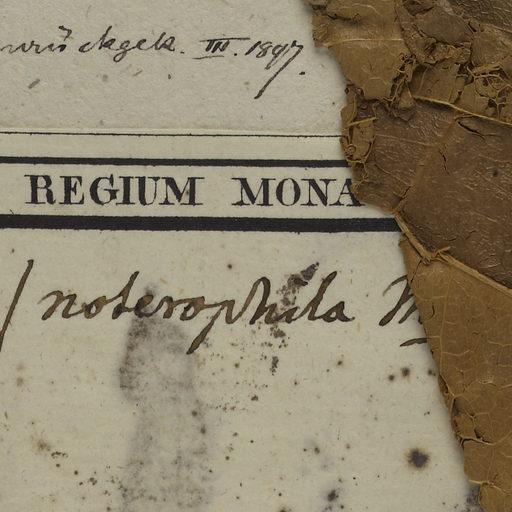 zurückgek. III. 1897.
REGIUM MONA
noterophila M